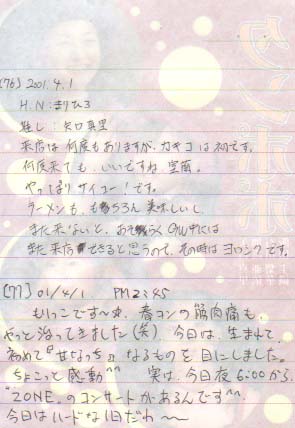 [76] 2001.4.1
H.N:まりひろ
推し:矢口真里
来店は何度もありますが、カキコは初です。
何度来ても、いいですね
やっぱりサイコー!です。
ラーメンも、もちろん美味しいし
また来ないと、
また来店できると思うので、その時はヨロシクです。
[77] 01/4/1 PM2:45
もいっこです〜。春コンの筋肉痛も、
やっと治ってきました(笑) 今日は、生まれて
初めて『せなっち』なるものを目にしました。
ちょこっと感動^^ 実は、今日夜6:00から、
"ZONE"のコンサートがあるんです^^
今日はハードな1日だわ〜
タンポポ